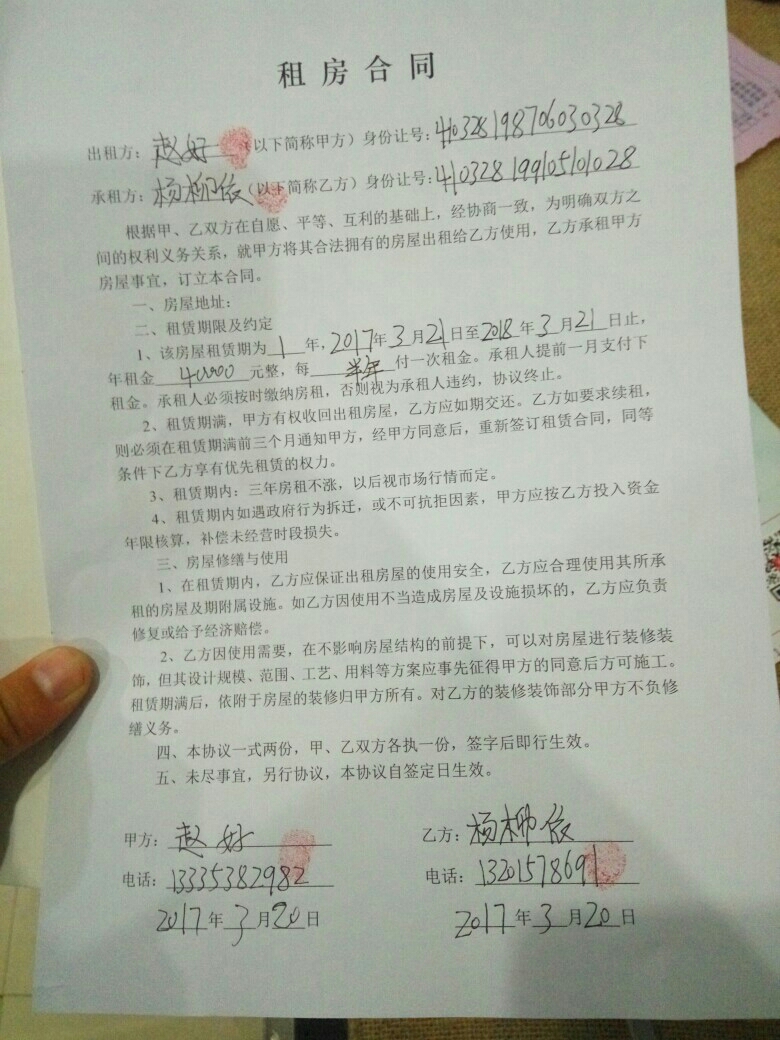 租房合同
出租方：赵好（以下简称甲方）身份让号：410328198706030328
承租方：杨柳依（以下简称乙方）身份让号：410328199105101028
根据甲、乙双方在自愿、平等、互利的基础上，经协商一致，为明确双方之
间的权利义务关系，就甲方将其合法拥有的房屋出租给乙方使用，乙方承租甲方
房屋事宜，订立本合同。
一、房屋地址：
二、租赁期限及约定
1、该房屋租赁期为1年，2017年3月21日至2018年3月21日止，
年租金40000元整，每半年付一次租金。承租人提前一月支付下
租金。承租人必须按时缴纳房租，否则视为承租人违约，协议终止。
2、租赁期满，甲方有权收回出租房屋，乙方应如期交还。乙方如要求续租，
则必须在租赁期满前三个月通知甲方，经甲方同意后，重新签订租赁合同，同等
条件下乙方享有优先租赁的权力。
3、租赁期内：三年房租不涨，以后视市场行情而定。
4、租赁期内如遇政府行为拆迁，或不可抗拒因素，甲方应按乙方投入资金
年限核算，补偿未经营时段损失。
三、房屋修缮与使用
1、在租赁期内，乙方应保证出租房屋的使用安全，乙方应合理使用其所承
租的房屋及期附属设施。如乙方因使用不当造成房屋及设施损坏的，乙方应负责
修复或给予经济赔偿。
2、乙方因使用需要，在不影响房屋结构的前提下，可以对房屋进行装修装
饰，但其设计规模、范围、工艺、用料等方案应事先征得甲方的同意后方可施工。
租赁期满后，依附于房屋的装修归甲方所有。对乙方的装修装饰部分甲方不负修
缮义务。
四、本协议一式两份，甲、乙双方各执一份，签字后即行生效。
五、未尽事宜，另行协议，本协议自签定日生效。
甲方：赵好 乙方：杨柳依
电话：13335382982 电话：13201578691
2017年3月20日 2017年3月20日